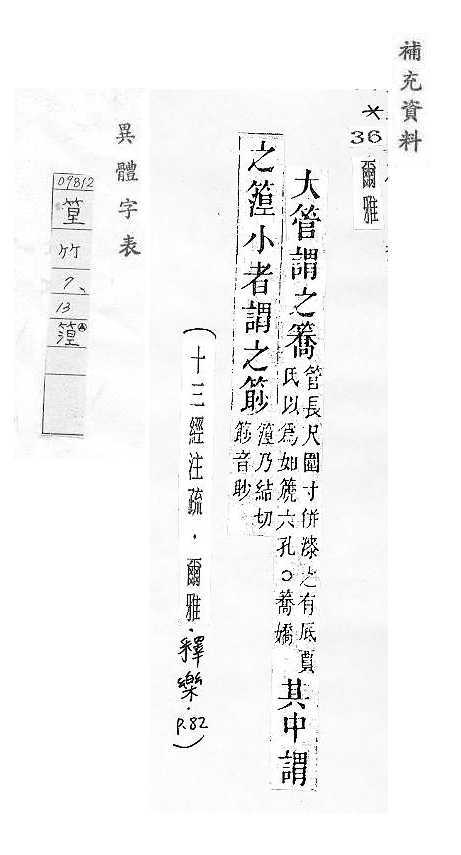 補充資料
36
爾雅
大管謂之簥
管長尺圍寸併漆之有底賈
氏以爲如篪六孔○簥嬌
其中謂
之篞小者謂之篎
篞乃結切
篎音眇
(十三經注疏．爾雅．釋樂．P.82)
異體字表
09812
竹
7
13
篞